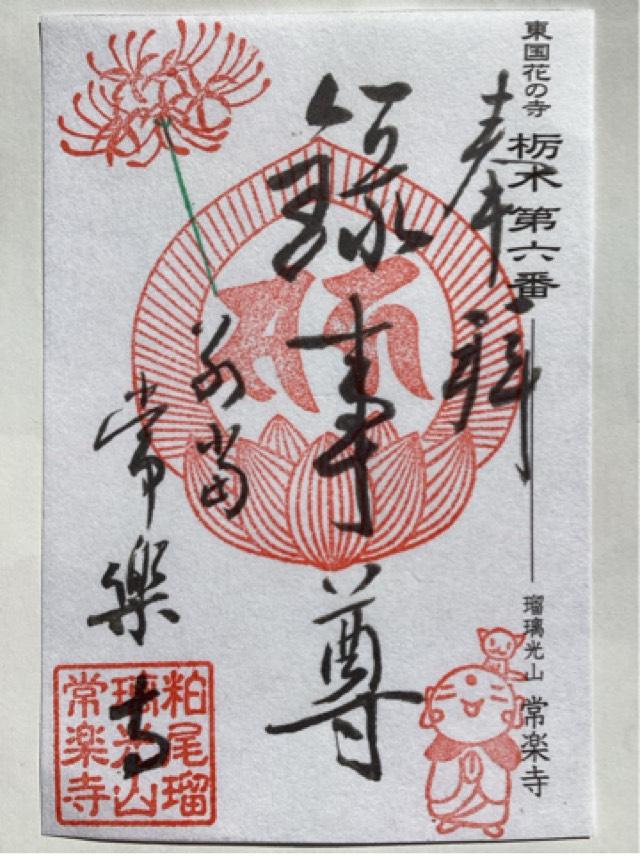 東国花の寺 栃木 第六番
瑠璃光山 常楽寺
奉拝
録事尊
別当
常樂寺
粕尾瑠
璃光山
常楽寺